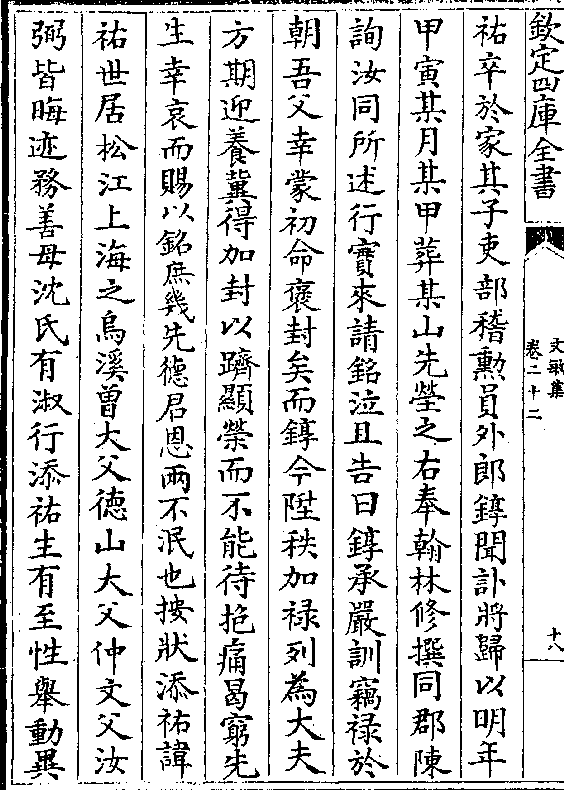 欽定四庫全書
文敏集
卷二十二
十八
祐卒於家其子吏部稽勲員外郎錞聞訃將歸以明年
甲寅某月某甲葬某山先塋之右奉翰林修撰同郡陳
詢汝同所述行實來請銘泣且告曰錞承嚴訓竊禄於
朝吾父幸蒙初命褒封矣而錞今陞秩加禄列為大夫
方期迎養冀得加封以躋顯榮而不能待抱痛曷窮先
生幸哀而賜以銘庶幾先徳君恩兩不泯也按狀添祐諱
祐世居松江上海之烏溪曾大父徳山大父仲文父汝
弼皆晦迹務善母沈氏有淑行添祐生有至性舉動異